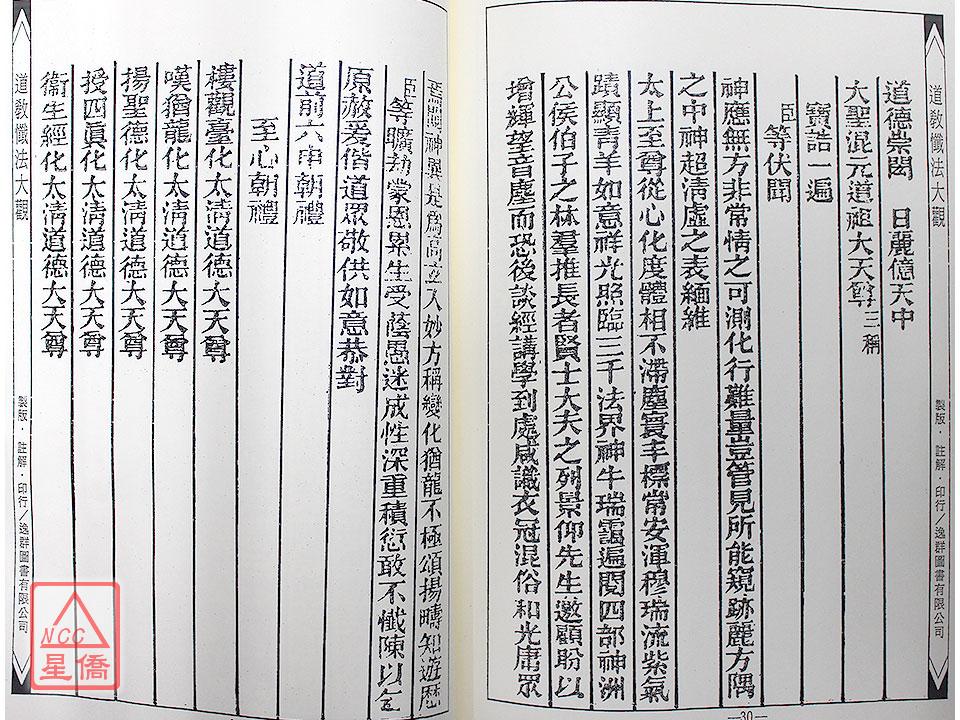 道教懺法大觀
製版・註解・印行/逸群圖書有限公司
道德崇閎 日麗億天中
大聖混元道祖大天尊三稱
寶誥一遍
臣等伏聞
神應無方非常情之可測化行難量豈管見所能窺跡麗方隅
之中神超清虛之表緬維
太上至尊從心化度體相不滯塵寰丰標常安渾穆瑞流紫氣
蹟顯青羊如意祥光照臨三千法界神牛瑞靄遍閱四部神洲
公侯伯子之林羣推長者賢士大夫之列景仰先生邀顧盼以
增輝望音塵而恐後談經講學到處咸識衣冠混俗和光庸眾
神異是為高立人妙方稱變化猶龍不極頌揚疇知遊歷
臣等曠劫蒙恩累生受蔭愚迷成性深重積愆敢不懺陳以
原赦爰偕道眾敬供如意恭對
道前六申朝禮
至心朝禮
樓觀臺化太清道德大天尊
嘆猶龍化太清道德大天尊
揚聖德化太清道德大天尊
授四真化太清道德大天尊
衛生經化太清道德大天尊
道教懺法大觀
製版・註解・印行/逸群圖書有限公司
—30—
NCC
星僑